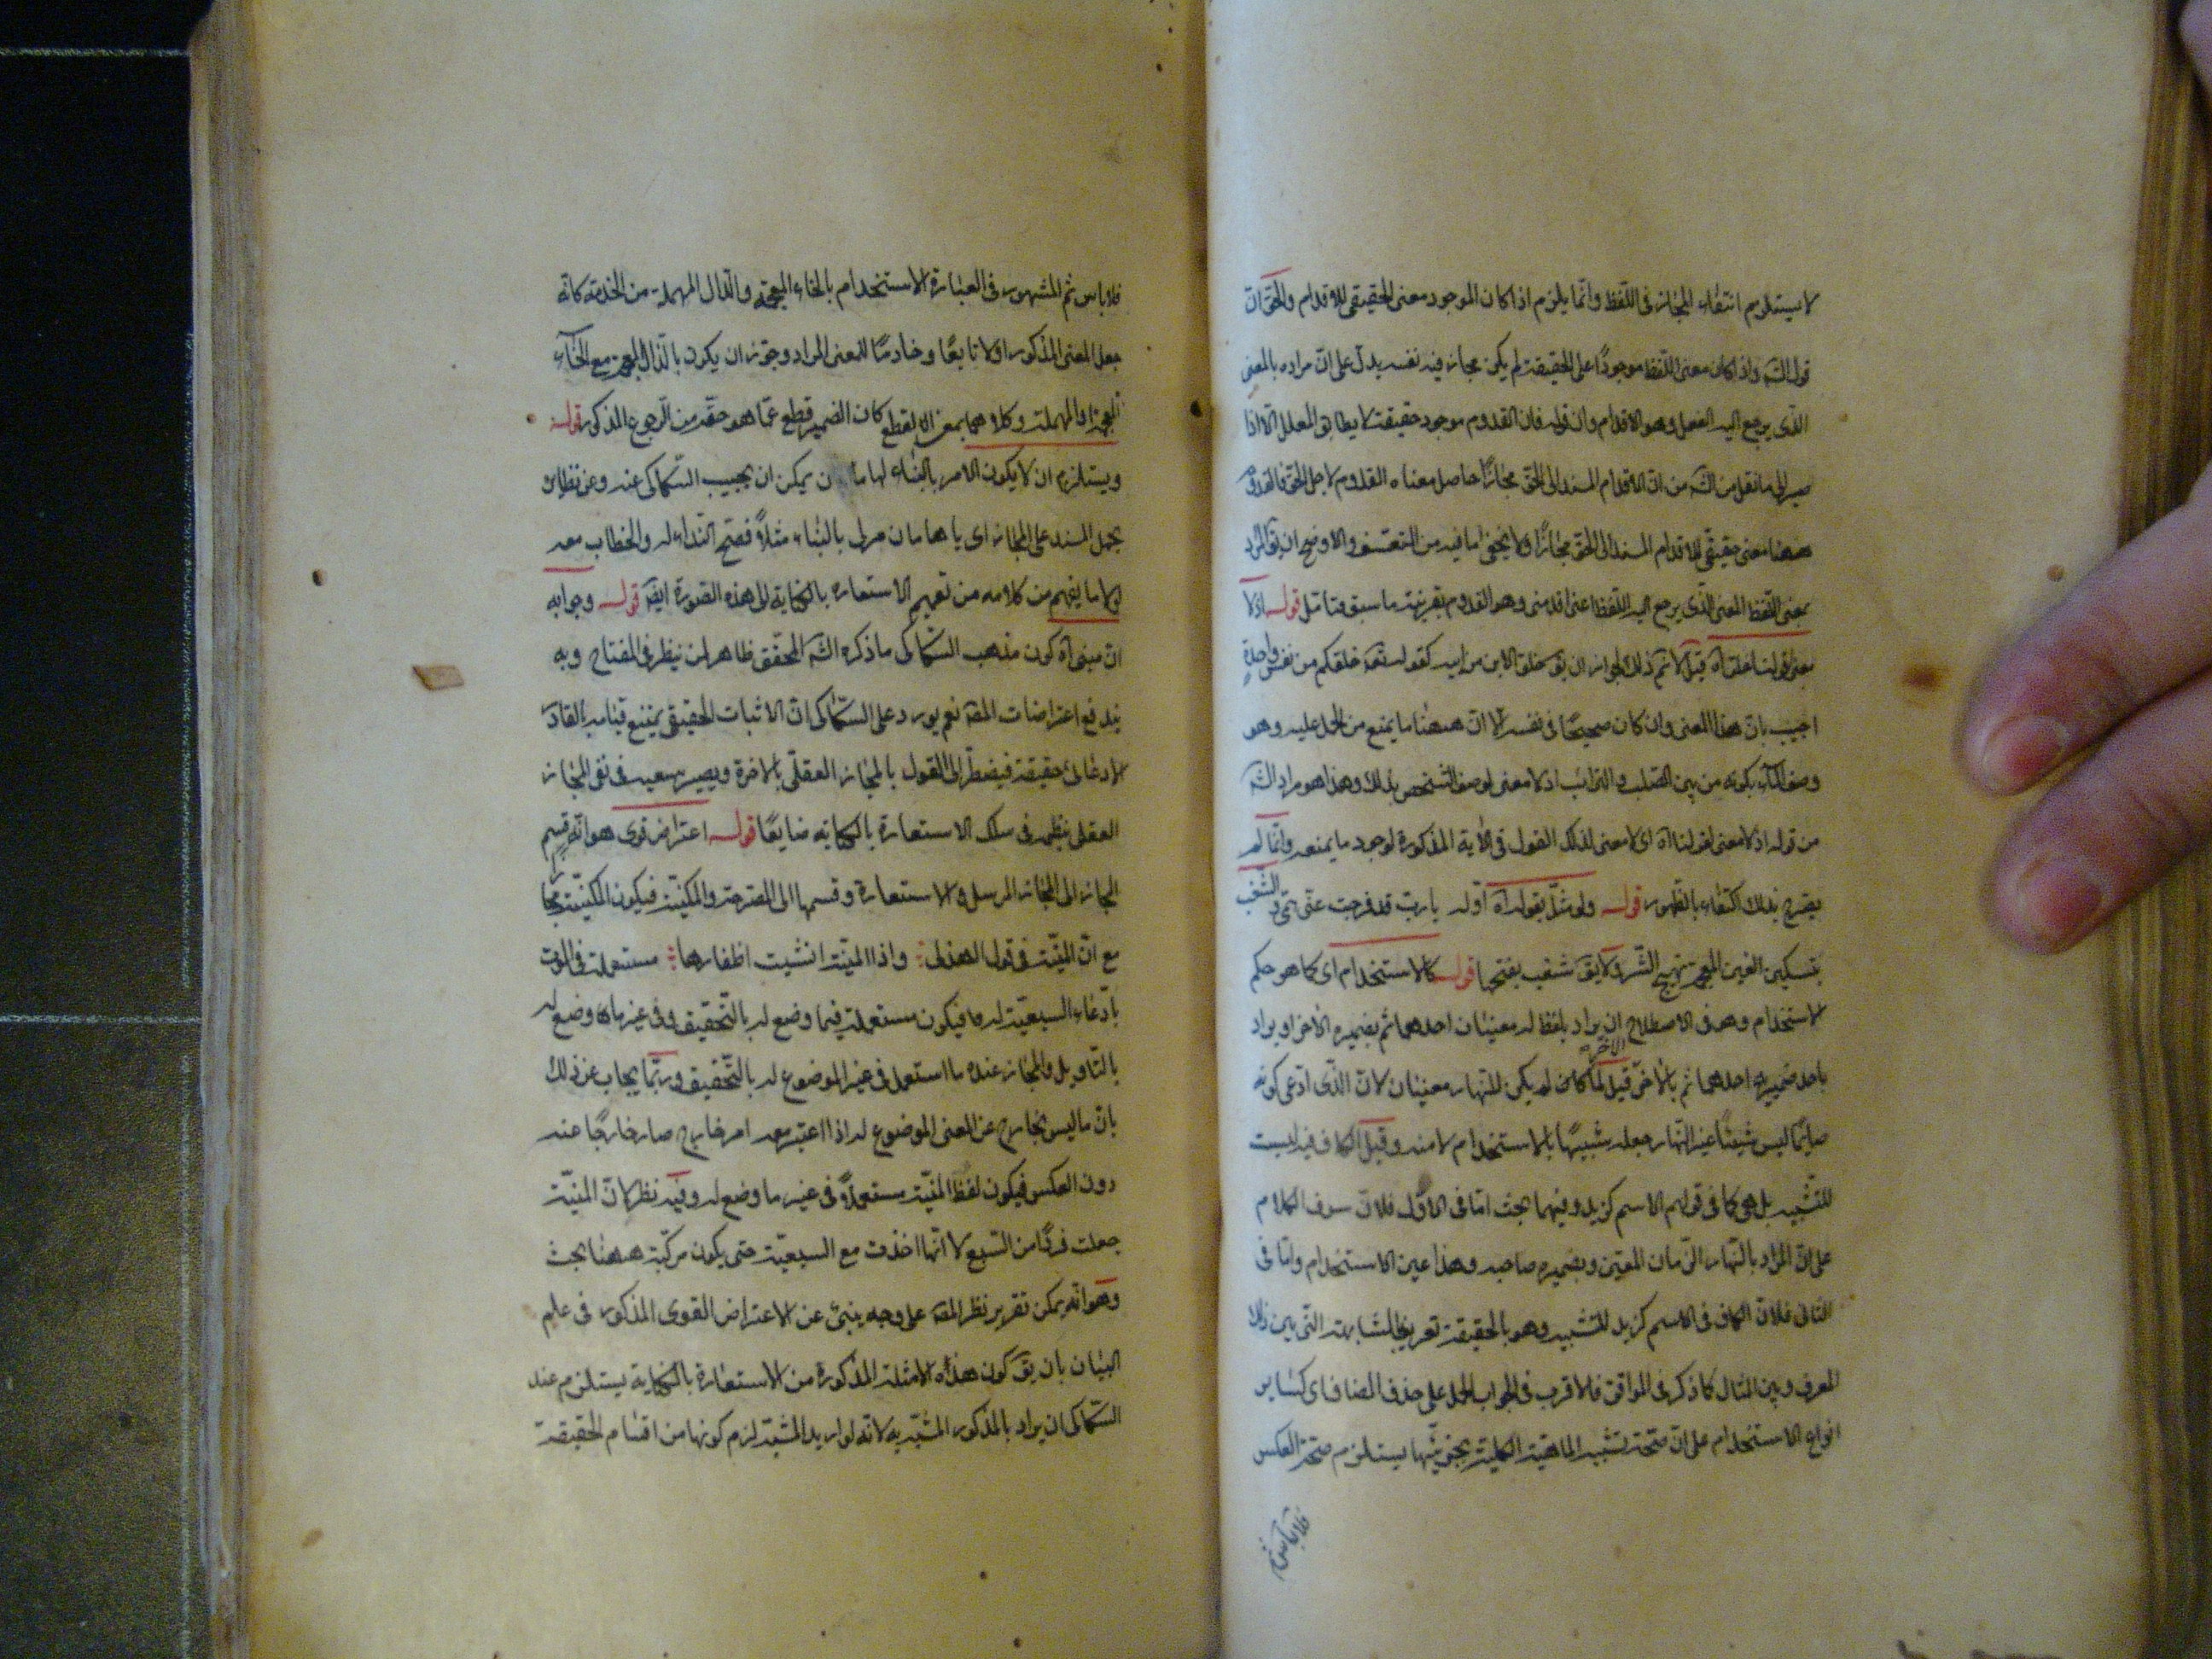 لا يستلزم انتفاء المجاز في اللفظ وانما يلزم اذا كان الموجود معنى الحقيقي للاقدام والحق ان
قول الش واذا كان معنى اللفظ موجودا على الحقيقة لم يكن مجاز فيه نفسه يدل على ان مراده بالمعنى
الذي يرجع اليه الفعل وهو الاقدام وان قوله فان القدوم موجود حقيقة لا يطابق المعلل الا اذا
صير الى ما نقل من الش من ان الاقدام المسند الى الحق مجازا حاصل معناه القدوم لاجل الحق فالقدوم
ههنا معنى حقيقي للاقدام المسند الى الحق مجازا ولا يخفى ما فيه من التعسف والاوضح ان يق المراد
بمعنى اللفظ المعنى الذي يرجع اليه اللفظ اعنى اقدمنى وهو القدوم بقرينة ما سبق فتامل قوله اذ لا
معنى لقولنا خلق اه قيل لا تم ذلك لجواز ان يق خلق الابن من ابيه كقوله تعه خلقكم من نفس واحدة
اجيب بان هذا المعنى وان كان صحيحا في نفسه الا ان ههنا ما يمنع من الحمل عليه وهو
وصف الماء بكونه من بين الصلب والترائب اذ لا معنى لوصف الشخص بذلك وهذا هو مراد الش
من قوله اذ لا معنى لقولنا اه اى لا معنى لذلك القول في الآية المذكورة لوجود ما يمنعه وانما لم
يصرح بذلك اكتفاء بالظهور قوله ولو مثل بقوله اه اوله يا رب قد فرجت عنى الشغب
بتسكين الغين المعجمة تهييج الشر ولا يق شغب بفتحها قوله كالاستخدام اى كما هو حكم
الاستخدام وهو في الاصطلاح ان يراد بلفظ له معنيان احدهما ثم بضميره الآخر او يراد
باحد ضميريه احدهما ثم بالآخر الآخر قيل لما كان لم يكن للنهار معنيان لان الذي ادعى كونه
صائما ليس شيئا غير النهار جعله شبيها بالاستخدام لا منه وقيل الكاف فيه ليست
للتشبيه بل هي كما في قولهم الاسم كزيد وفيهما بحث اما في الاول فلان سوق الكلام
على ان المراد بالنهار الزمان المعين وبضميره صاحبه وهذا عين الاستخدام واما في
الثاني فلان الكاف في الاسم كزيد للتشبيه وهو بالحقيقة تعريف بالمشابهة التي بين ذلك
المعرف وبين المثال كما ذكر في المواقف فالاقرب في الجواب الحمل على حذف المضاف اى كسائر
انواع الاستخدام على ان صحة تشبيه الماهية الكلية بجزئيها يستلزم صحة العكس
فلا باس ثم
فلا باس ثم المشهور في العبارة الاستخدام بالخاء المعجمة والدال المهملة من الخدمة كانه
جعل المعنى المذكور اولا تابعا وخادما للمعنى المراد وجوز ان يكون بالذال المعجمة مع الخاء
المعجمة او المهملة وكلاهما بمعنى القطع كان الضمير قطع عما هو حقه من الرجوع المذكور قوله
ويستلزم ان لا يكون الامر بالبناء لهامان يمكن ان يجيب السكاكى عنه وعن نظائره
بحمل المسند على المجاز اى يا هامان مر لى بالبناء مثلا فصح النداء له والخطاب معه
الا ما يفهم من كلامه من تعميم الاستعارة بالكناية الى هذه الصورة ايضه قوله وجوابه
ان مبنى اه كون مذهب السكاكى ما ذكره الش المحقق ظاهر لمن ينظر في المفتاح وبه
يندفع اعتراضات المص نعم يورد على السكاكى ان الاثبات الحقيقي يمتنع قيامه بالقادر
الادعائى حقيقة فيضطر الى القول بالمجاز العقلى بالاخرة ويصير سعيه في نفى المجاز
العقلى بنظمه في سلك الاستعارة بالكناية ضايعا قوله اعتراض قوى هو انه قسم
المجاز الى المجاز المرسل والاستعارة وقسمها الى المصرحة والمكنية فيكون المكنية مجازا
مع ان المنية في قول الهذلى واذا المنية انشبت اظفارها مستعملة في الموت
بادعاء السبعية له وما فيكون مستعملة فيما وضع له بالتحقيق وفى غير ما وضع له
بالتاويل والمجاز عنده ما استعمل في غير الموضوع له بالتحقيق وربما يجاب عن ذلك
بان ما ليس بخارج عن المعنى الموضوع له اذا اعتبر معه امر خارج صار خارجا عنه
دون العكس فيكون لفظ المنية مستعملا في غير ما وضع له وفيه نظر لان المنية
جعلت فردا من السبع لا انها اخذت مع السبعية حتى يكون مركبة ههنا بحث
وهو انه يمكن تقرير نظر المص على وجه ينبئ عن الاعتراض القوى المذكور في علم
البيان بان يق كون هذه الامثلة المذكورة من الاستعارة بالكناية يستلزم عند
السكاكى ان يراد بالمذكور المشبه به لانه لو اريد المشبه لزم كونها من اقسام الحقيقة